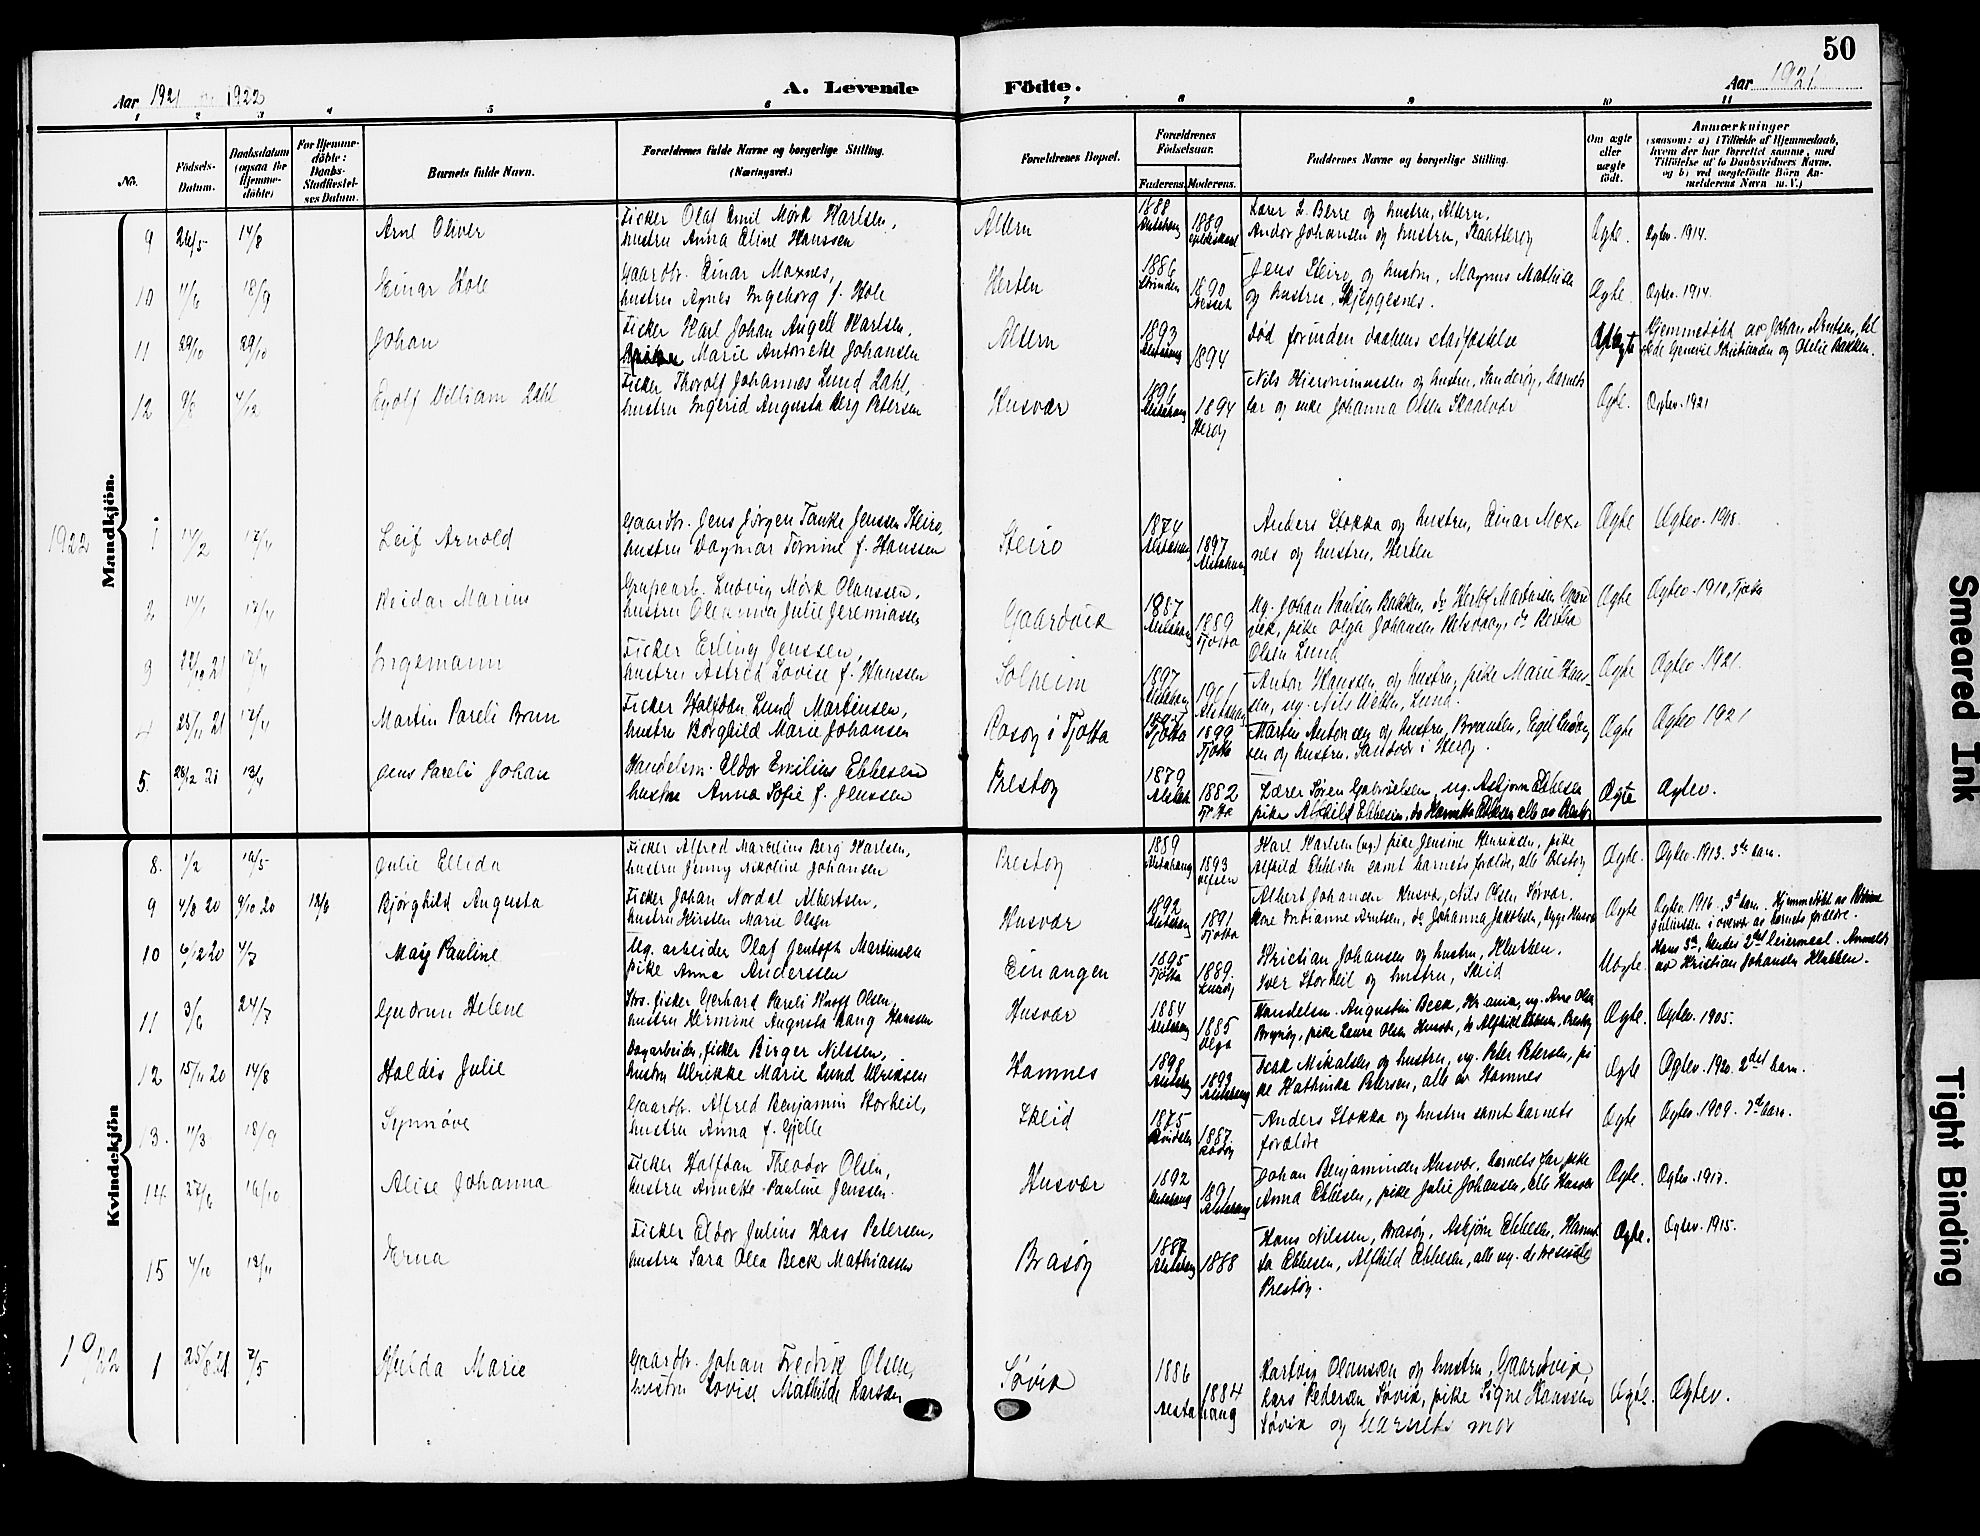 50
Aar 1921 og 1922
A. Levende
Födte.
Aar 1921
1 2 3 4 5 6 7 8 9 10 11
No.
Födsels-
Datum.
Daabsdatum
(ogsaa for
Hjemme-
döbte)
For Hjemme-
döbte:
Daabs-
Stadfæstel-
ses Datum.
Barnets fulde Navn.
Forældrenes fulde Navne og borgerlige Stilling.
(Næringsvei.)
Forældrenes Bopæl.
Forældrenes
Födselsaar.
Faderens. Moderens.
Faddernes Navne og borgerlige Stilling.
Om ægte
eller
uægte
födt.
Anmærkninger
(saasom: a) i Tilfælde af Hjemmedaab,
hvem der har forrettet samme, med
Tilföielse af to Daabsvidners Navne,
og b) ved uægtefödte Börn An-
melderens Navn m. V.)
Mandkjön.
9 26/5 14/8 Arne Oliver
Fisker Olaf Emil Mørk Karlsen,
hustru Anna Eline Hanssen
Altern
1888 Alstahaug 1889
Lærer L. Berre og hustru, Altern,
Andor Johansen og hustru, Skaatterøy
Ægte. Ægtev. 1914.
10 11/6 18/9 Einar Hole
Gaardbr. Einar Moxnes,
hustru Agnes Ingeborg f. Hole
Herten
1886 Strinden 1890 Nesset
Jens Steiro og hustru, Magnus Mathisen
og hustru, Skjeggesnes.
Ægte Ægtev. 1914.
11 29/10 29/10 Johan
Fisker Karl Johan Angell Karlsen,
Marie Antoviette Johansen
Altern
1893 Alstahaug 1894
død forinden daabens stadfæstelse
Hjemmedøbt av Johan Arntsen, til
stede Genevie Kristiansen og Otelie Bakken.
12 9/8 4/12 Eyolf William Dahl
Fisker Thorolf Johannes Lund Dahl,
hustru Ingerid Augusta Berg Petersen
Husvær
1896 Alstahaug 1894 Herøy
Nils Hieronimussen og hustru, Sanderøy, barnets
far og enke Johanna Olsen Skaalvær
Ægte. Ægtev. 1921
1922
1 14/2 17/4 Leif Arnold
Gaardbr. Jens Jørgen Tanke Jenssen Steiro,
hustru Dagmar Tomine f. Hanssen
Steiro
1874 Alstahaug 1897 Alstahaug
Anders Stokka og hustru, Einar Mox-
nes og hustru, Herten
Ægte Ægtev. 1918.
2 14/1 17/4 Reidar Marius
Grubearb. Ludvig Mørk Olaussen,
hustru Oleanna Julie Jeremiassen
Gaardvik
1887 Alstahaug 1889 Tjøtta
Ug. Johan Paulsen Bakken, do Herlof Martinsen Gaard
vik, pike Olga Johansen Belsvaag, do Bertha
Olsen Lund
Ægte Ægtev. 1910, Tjøtta
3 22/12 21 17/4 Ingemann
Fisker Erling Jenssen,
hustru Astrid Lovise f. Hanssen
Solheim
1897 Alstahaug 1901 Alstahaug
Anton Hanssen og hustru, pike Marie Hans-
sen, ug. Nils Aaken, Lund.
Ægte Ægtev. 1921.
4 23/11 21 17/4 Martin Pareli Brun
Fisker Halfdan Lund Martinsen,
hustru Borghild Marie Johansen
Rosøy i Tjøtta
Tjøtta 1899 Tjøtta
Martin Antonsen og hustru, Brvauten, Egil Ludvig
sen og hustru, Sandvær i Herøy.
Ægte Ægtev 1921
5. 28/12 21 13/4 Jens Pareli Johan
Handelsm. Eldor Emilius Ebbesen
hustru Anna Sofie f. Jenssen
Prestøy
1879 Alstah. 1882 Tjøtta
Lærer Søren Gabrielsen, ug. Asbjørn Ebbesen
pike Alfhild Ebbesen, do Hannetta Ebbesen alle av Prestøy
Ægte Ægtev.
Kvindekjön
8. 1/2 16/5 Julie Ellida
Fisker Alfred Marcelius Berg Karlsen,
hustru Jenny Nikoline Johansen
Prestøy
1889 Alstahaug 1893 Vefsen
Karl Karlsen (ug.) pike Jensine Henriksen, pike
Alfhild Ebbesen samt barnets forældre, alle Prestøy
Ægte. Ægtev. 1913. 3die barn.
9 4/8 20 9/10 20 18/8 Bjørghild Augusta
Fisker Johan Nordal Albertsen,
hustru Kirsten Marie Olsen
Husvær
1892 Alstahaug 1891 Tjøtta
Albert Johansen Husvær, Nils Olsen Sørvær.
Kone Indianne Arntsen, do Johanna Jakobsen, begge Husvær
Ægte Ægtev. 1916. 3die barn. Hjemmedøbt av
Juliussen i overvær av barnets forældre.
10 6/12 20 4/7 May Pauline
Ug. arbeider Olaf Jentoft Martinsen
pike Anna Anderssen
Einangen
1895 Tjøtta 1889.
Kristian Johansen og hustru, Klubben.
Iver Storheil og hustru, Skeid
Uægte. Hans 3die, hendes 2det leiermaal. Anmeldt
av Kristian Johansen Klubben.
11 3/6 24/7 Gudrun Helene
Strs. fisker Gerhard Pareli Knoff Olsen,
hustru Hermine Augusta Lang Hanssen
Husvær
1884 Alstahaug 1885 Vega
Handelsm. Augustin Beck, Kr.ania, ug. Arne Olsen
Brynøy, pike Laura Olsen Husvær, do Alfhild Ebbesen, Prestøy
Ægte. Ægtev. 1905.
12 15/11 20 14/8 Haldis Julie
Dagarbeider, fisker Birger Nilssen,
hustru Ulrikke Marie Lund Ulriksen
Hamnes
1898 Alstahaug 1899 Alstahaug
Isak Mikalsen og hustru, ug. Peter Petersen, pi-
ke Kathinka Petersen, alle av Hamnes
Ægte Ægtev. 1920. 2det barn.
13. 11/3 18/9 Synnøve
Gaardbr. Alfred Benjamin Storheil,
hustru Anna f. Gjelle
Skeid
1875 1887 Rødøy
Anders Stokka og hustru samt barnets
forældre
Ægte Ægtev. 1909. 7de barn.
14 27/6 16/10 Alise Johanna
Fisker Halfdan Theodor Olsen,
hustru Annette Pauline Jenssen
Husvær
1892 Alstahaug 1891 Alstahaug
Johan Benjaminsen Husvær, barnets far, pike
Anna Ebbesen, pike Julie Johansen, alle Husvær
Ægte. Ægtev. 1917.
15 4/10 13/11 Erna
Fisker Eldor Julius Hass Petersen,
hustru Sara Olea Beck Mathiassen
Brasøy
Alstahaug 1888
Hans Nilssen, Brasøy, Asbjørn Ebbesen, Hannet
ta Ebbesen, Alfhild Ebbesen, alle ug. de tre sidste
Prestøy.
Ægte. Ægtev. 1915.
1922
1 25/8 21 7/5 Hulda Marie
Gaardbr. Johan Fredrik Olsen,
hustru Lovise Mathilde Larsen
Søvik
1886 1884 Alstahaug
Hartvig Olaussen og hustru, Gaardvik,
Lars Pedersen Søvik, pike Signe Hanssen
Søvik og barnets mor
Ægte. Ægtev.
Smeared Ink
Tight Binding